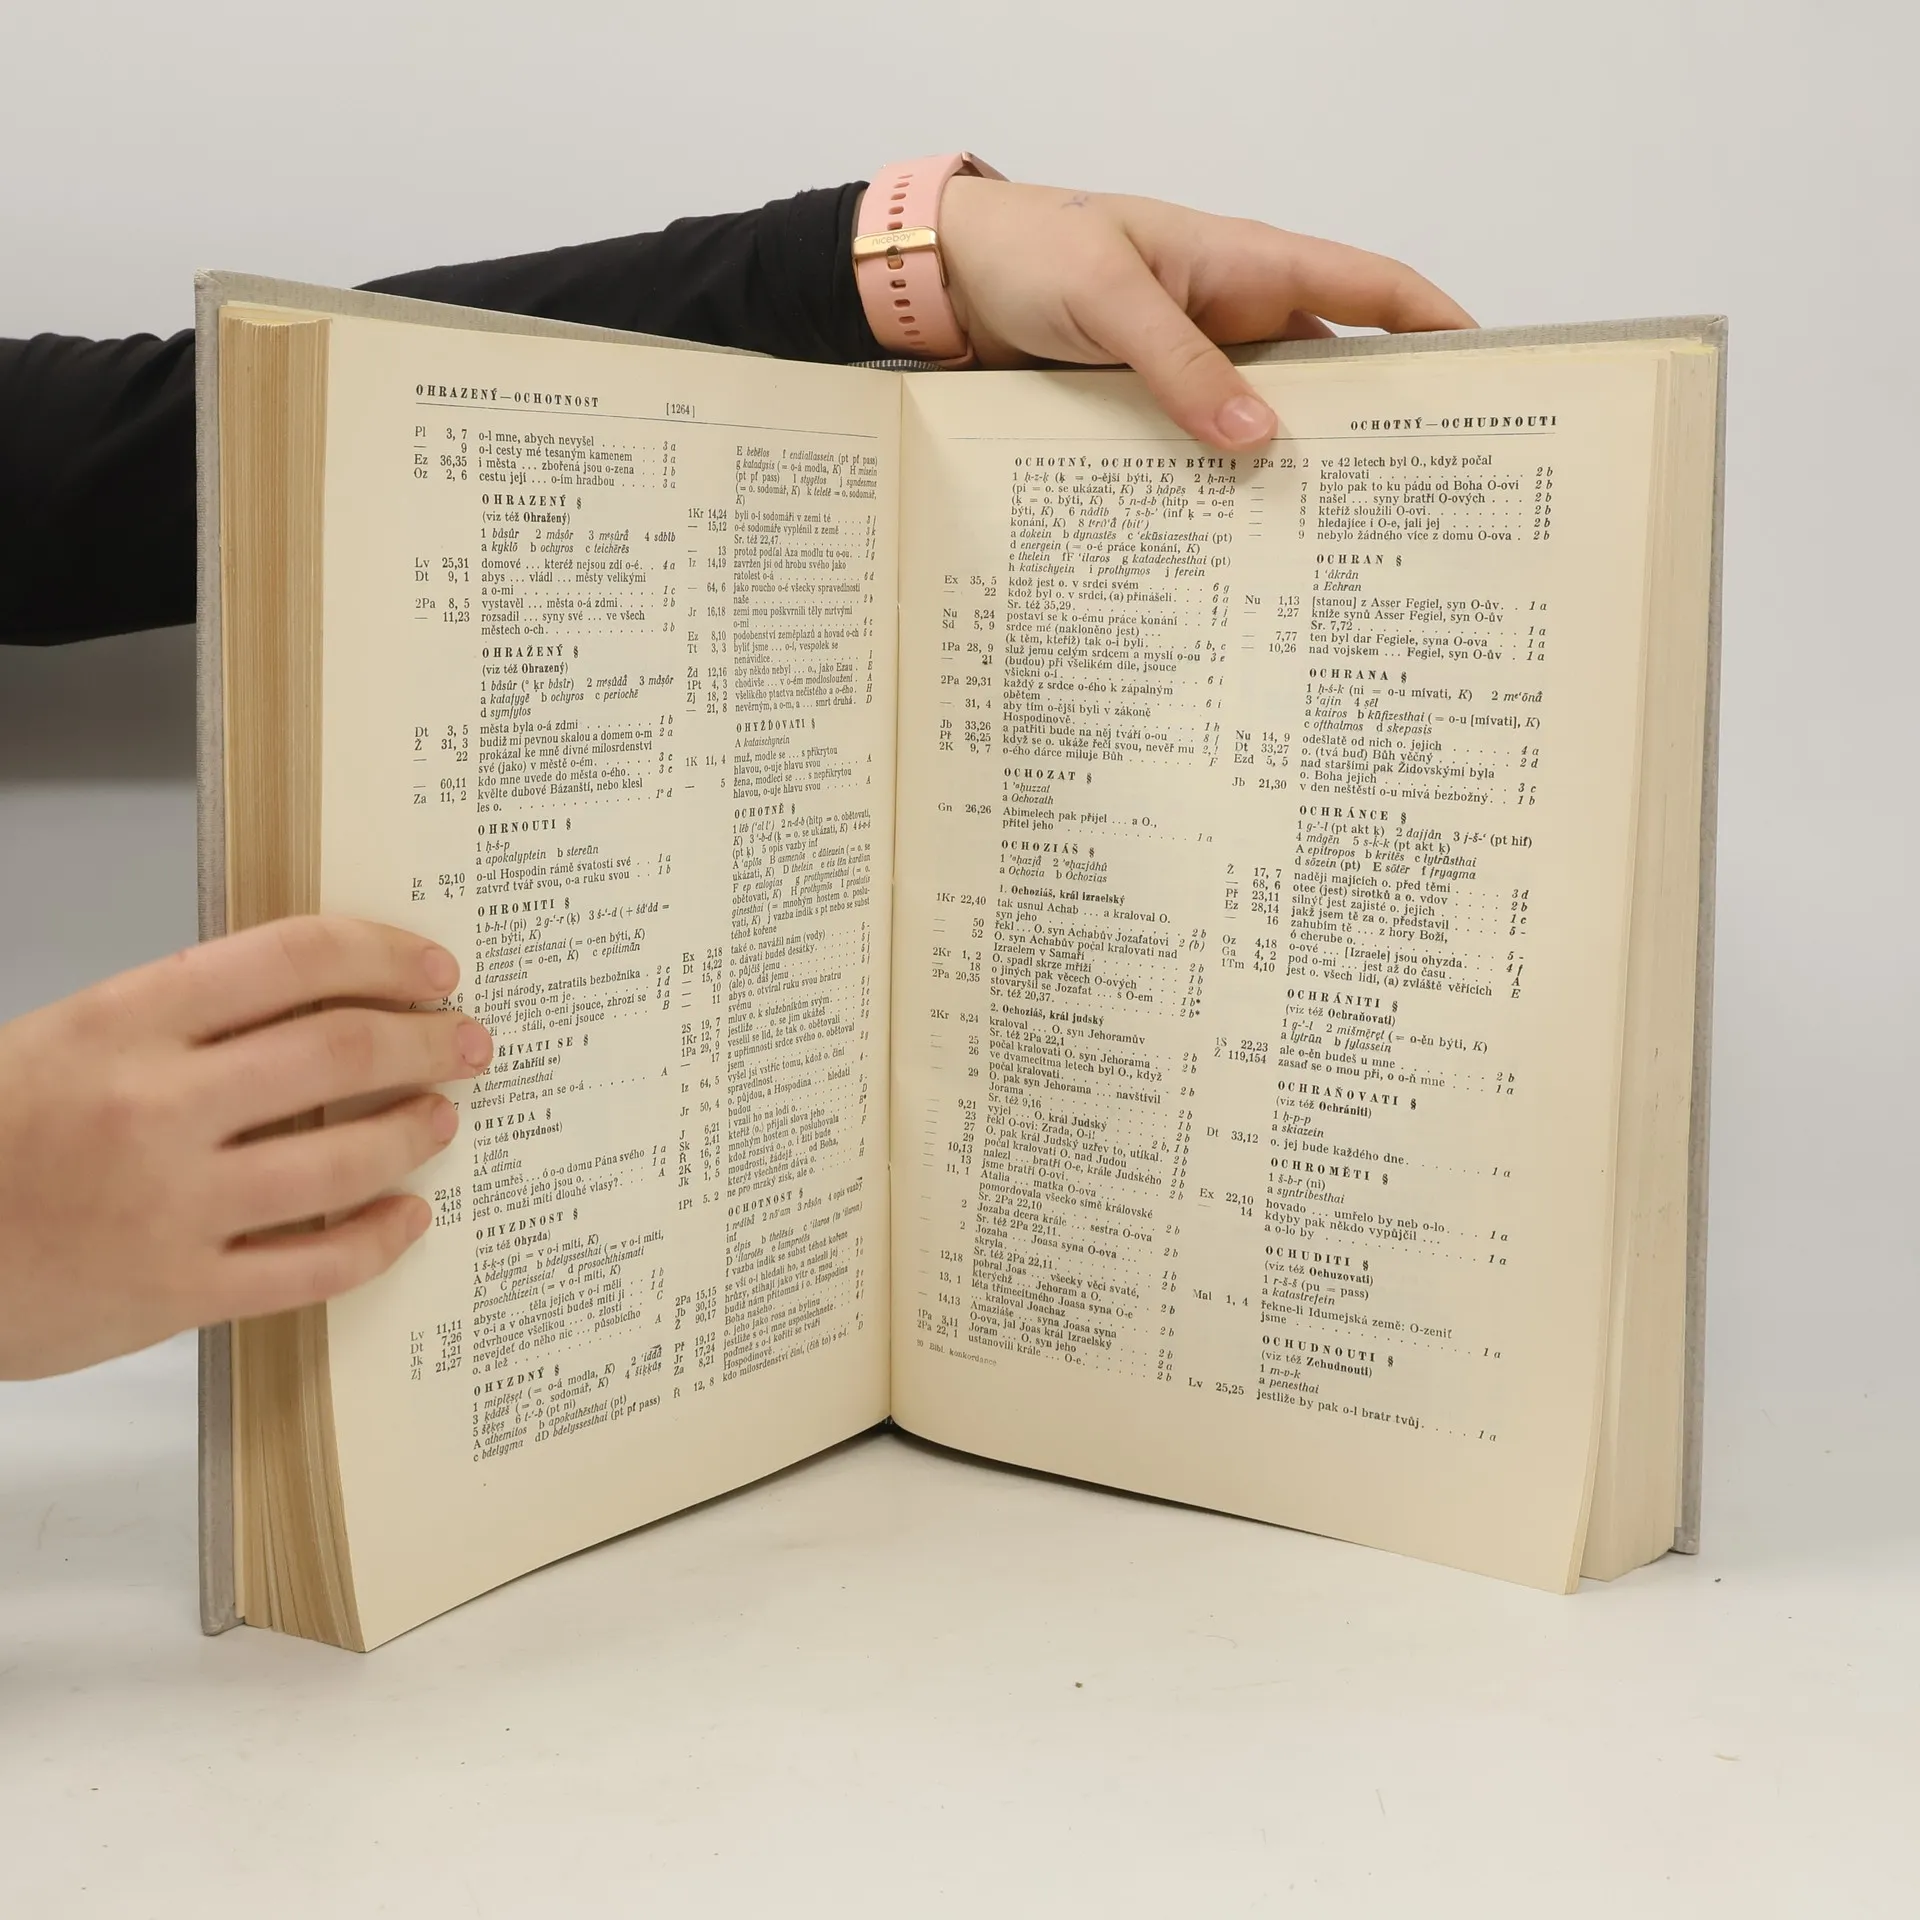 nicebay
OHRAZENÝ—OCHOTNOST
[1264]
Pl 3, 7 o-l mne, abych nevyšel . . . . . . 3 a
— 9 o-l cesty mé tesaným kamenem . . . 3 a
Ez 36,35 i města ... zbořená jsou o-zena . . 1 b
Oz 2, 6 cestu její ... o-ím hradbou . . . . 3 a
OHRAZENÝ §
(viz též Ohražený)
1 bāsûr 2 māsôr 3 mesûrâ 4 sābîb
a kyklō b ochyros c teichērēs
Lv 25,31 domové ... kteréž nejsou zdí o-é. . 4 a
Dt 9, 1 abys ... vládl ... městy velikými
a o-mi . . . . . . . . . . 1 c
2Pa 8, 5 vystavěl ... města o-á zdmi. . . . 2 b
— 11,23 rozsadil ... syny své ... ve všech
městech o-ch. . . . . . . . . . 3 b
OHRAŽENÝ §
(viz též Ohrazený)
a katafygē b ochyros c periochē
d symfytos
Dt 3, 5 města byla o-á zdmi . . . . . . . 1 b
Ž 31, 3 budiž mi pevnou skalou a domem o-m 2 a
— 22 prokázal ke mně divné milosrdenství
své (jako) v městě o-ém. . . . . . 3 c
— 60,11 kdo mne uvede do města o-ého. . . 3 c
Za 11, 2 kvělte dubové Bázanští, nebo klesl
les o. . . . . . . . . . . . . 1* d
OHRNOUTI §
1 ḥ-ś-p
a apokalyptein b stereūn
Iz 52,10 o-ul Hospodin rámě svatosti své . . 1 a
Ez 4, 7 zatvrď tvář svou, o-a ruku svou . . 1 b
OHROMITI §
o-en býti, K)
a ekstasei existanai (= o-en býti, K)
B eneos (= o-en, K) c epitimān
d tarassein
9, 6 o-l jsi národy, zatratils bezbožníka . 2 c
a bouří svou o-m je. . . . . . . 1 d
králové jejich o-eni jsouce, zhrozí se 3 a
ží ... stáli, o-eni jsouce . . . . . B
ŘÍVATI SE §
též Zahříti se)
A thermainesthai
uzřevši Petra, an se o-á . . . . . . A
OHYZDA §
(viz též Ohyzdnost)
1 kālôn
aA atimia
22,18 tam umřeš ... ó o-o domu Pána svého 1 a
4,18 ochráncové jejho jsou o. . . . . . 1 a
11,14 jest o. muži míti dlouhé vlasy?. . . . A
OHYZDNOST §
(viz též Ohyzda)
1 š-ḳ-ṣ (pi = v o-i míti, K)
A bdelygma b bdelyssesthai (= v o-i míti,
K) C perisseia! d prosochthismati
prosochthizein (= v o-i míti, K)
Lv 11,11 abyste ... těla jejich v o-i měli . . 1 b
Dt 7,26 v o-i a v ohavnosti budeš míti ji . . 1 d
Jk 1,21 odvrhouce všelikou ... o. zlosti . . C
Zj 21,27 nevejdeť do něho nic ... působícího
o. a lež . . . . . . . . . . . A
OHYZDNÝ §
c bdelygma dD bdelyssesthai (pt pf pass)
E bebēlos f endiallassein (pt pf pass)
g katadysis (= o-á modla, K) H misein
(pt pf pass) I stygētos j syndesmos
(= o. sodomář, K) k teletē = o. sodomář,
K)
1Kr 14,24 byli o-í sodomáři v zemi té . . . . 3 j
— 15,12 o-é sodomáře vyplénil z země . . . 3 k
Sr. též 22,47. . . . . . . . . . 3 f
— 13 protož podťal Aza modlu tu o-ou. . 1 g
Iz 14,19 zavržen jsi od hrobu svého jako
ratolest o-á . . . . . . . . . . 6 d
— 64, 6 jako roucho o-é všecky spravedlnosti
naše . . . . . . . . . . . . 2 b
Jr 16,18 zemi mou poškvrnili těly mrtvými
o-mi . . . . . . . . . . . . 4 c
Ez 8,10 podobenství zeměplazů a hovad o-ch 5 c
Tt 3, 3 byliť jsme ... o-í, vespolek se
nenávidíce. . . . . . . . . . . I
Žd 12,16 aby někdo nebyl ... o., jako Ezau . E
1Pt 4, 3 chodivše ... v o-ém modloslouženi . A
Zj 18, 2 všelikého ptactva nečistého a o-ého. H
— 21, 8 nevěrným, a o-m, a ... smrt druhá. D
OHYŽĎOVATI §
A kataischynein
1K 11, 4 muž, modle se ... s přikrytou
hlavou, o-uje hlavu svou . . . . A
— 5 žena, modleci se ... s nepřikrytou
hlavou, o-uje hlavu svou . . . . A
OCHOTNĚ §
téhož kořene
Ex 2,18 také o. navážil nám (vody) . . . 5 -
Dt 14,22 o. dávati budeš desátky. . . . . 5 j
— 15, 8 o. půjčíš jemu . . . . . . . . 5 j
— 10 (ale) o. dáš jemu . . . . . . . 5 j
— 11 abys o. otvíral ruku svou bratru
svému . . . . . . . . . . . 5 j
2S 19, 7 mluv o. k služebníkům svým. . . 1 c
1Kr 12, 7 jestliže ... o. se jim ukážeš . . .
1Pa 29, 9 veselil se lid, že tak o. obětovali .
17 z upřímnosti srdce svého o. obětoval
jsem
Iz 64, 5 vyšel jsi vstříc tomu, kdož o. činí
spravedlnost
Jr 50, 4 o. půjdou, a Hospodina ... hledati
budou
J 6,21 i vzali ho na lodí o.
Sk 2,41 kteříž (o.) přijali slova jeho
Ř 16, 2 mnohým hostem o. posluhovala
2K 9, 6 kdož rozsívá o., o. i žíti bude
Jk 1, 5 moudrosti, žádejž ... od Boha,
kterýž všechněm dává o.
1Pt 5, 2 ne pro mrzký zisk, ale o.
OCHOTNOST §
2Pa 15,15 se vší o-í hledali ho, a nalezli jej
Jb 30,15 hrůzy, stíhají jako vítr o. mou
Ž 90,17 budiž nám přítomná i o. Hospodina
Boha našeho.
Př 19,12 o. jeho jako rosa na bylinu
Jr 17,24 jestliže s o-í mne uposlechnete
Za 8,21 poďmež s o-í kořiti se tváři
Hospodinově
Ř 12, 8 kdo milosrdenství činí, (čiň to) s o-í.
OCHOTNÝ—OCHUDNOUTI
OCHOTNÝ, OCHOTEN BÝTI §
1 ḥ-z-ḳ (ḳ = o-ější býti, K) 2 ḥ-n-n
(pi = o. se ukázati, K) 3 ḥāpēs 4 n-d-b
(ḳ = o. býti, K) 5 n-d-b (hitp = o-en
býti, K) 6 nādîb 7 s-b-' (inf ḳ = o-é
a dokein b dynastēs c 'ekūsiazesthai (pt)
d energein (= o-é práce konání, K)
e thelein fF 'ilaros g katadechesthai (pt)
h katischyein i prothymos j ferein
Ex 35, 5 kdož jest o. v srdci svém . . . . . 6 g
— 22 kdož byl o. v srdci, (a) přinášeli. . . 6 a
Sr. též 35,29. . . . . . . . . . . 4 j
Nu 8,24 postaví se k o-ému práce konání . . 7 d
Sd 5, 9 srdce mé (nakloněno jest) ...
(k těm, kteříž) tak o-í byli. . . . 5 b, c
1Pa 28, 9 služ jemu celým srdcem a myslí o-ou 3 e
— 21 (budou) při všelikém díle, jsouce
všickni o-í. . . . . . . . . . . 6 i
2Pa 29,31 každý z srdce o-ého k zápalným
obětem . . . . . . . . . . . . 6 i
— 31, 4 aby tím o-ější byli v zákoně
Hospodinově. . . . . . . . . . 1 h
Jb 33,26 a patřiti bude na něj tváří o-ou . . 8 f
Př 26,25 když se o. ukáže řečí svou, nevěř mu
2K 9, 7 o-ého dárce miluje Bůh . . . . . . F
OCHOZAT §
1 'ahuzzat
a Ochozath
Gn 26,26 Abimelech pak přijel ... a O.,
přítel jeho . . . . . . . . . . 1 a
OCHOZIÁŠ §
1 'ahazjâ 2 'ahazjāhû
a Ochozia b Ochozias
1. Ochoziáš, král izraelský
1Kr 22,40 tak usnul Achab ... a kraloval O.
syn jeho . . . . . . . . . . . 2 b
— 50 řekl ... O. syn Achabův Jozafatovi 2 (b)
— 52 O. syn Achabův počal kralovati nad
Izraelem v Samaří . . . . . . . 2 b
2Kr 1, 2 O. spadl skrze mříži . . . . . . . 1 b
— 18 o jiných pak věcech O-ových . . . 2 b
2Pa 20,35 stovaryšil se Jozafat ... s O-em . . 1 b*
Sr. též 20,37. . . . . . . . . . . 2 b*
2. Ochoziáš, král judský
2Kr 8,24 kraloval ... O. syn Jehoramův
Sr. též 2Pa 22,1 . . . . . . . . . 2 b
— 25 počal kralovati O. syn Jehorama . . 2 b
— 26 ve dvamecítma letech byl O., když
počal kralovati. . . . . . . . . 2 b
— 29 O. pak syn Jehorama ... navštívil
Jorama . . . . . . . . . . . . 2 b
Sr. též 9,16 . . . . . . . . . . . 1 b
— 9,21 vyjel ... O. král Judský . . . . . 2 b
— 23 řekl O-ovi: Zrada, O-i! . . . . . 2 b, 1 b
— 27 O. pak král Judský uzřev to, utíkal. 2 b
— 29 počal kralovati O. nad Judou . . . 1 b
— 10,13 nalezl ... bratří O-e, krále Judského 2 b
— 13 jsme bratří O-ovi. . . . . . . . . 2 b
— 11, 1 Atalia ... matka O-ova ...
pomordovala všecko símě královské
Sr. 2Pa 22,10 . . . . . . . . . . 2 b
— 2 Jozaba dcera krále ... sestra O-ova
Sr. též 2Pa 22,11. . . . . . . . . 2 b
— 2 Jozaba ... Joasa syna O-ova ...
skryla. . . . . . . . . . . . .
Sr. též 2Pa 22,11. . . . . . . . . 1 b
— 12,18 pobral Joas ... všecky věci svaté,
kterýchž ... Jehoram a O. . . . . 2 b
— 13, 1 léta třimecítmého Joasa syna O-e
... kraloval Joachaz . . . . . . . 2 b
— 14,13 Amaziáše ... syna Joasa syna
O-ova, jal Joas král Izraelský . . . 2 b
1Pa 3,11 Joram ... O. syn jeho . . . . . . 2 a
2Pa 22, 1 ustanovili krále ... O-e. . . . . . 2 b
Bibl. konkordance
2Pa 22, 2 ve 42 letech byl O., když počal
kralovati . . . . . . . . . . . 2 b
— 7 bylo pak to ku pádu od Boha O-ovi 2 b
— 8 našel ... syny bratří O-ových . . . 2 b
— 8 kteříž sloužili O-ovi. . . . . . . . 2 b
— 9 hledajíce i O-e, jali jej . . . . . . 2 b
— 9 nebylo žádného více z domu O-ova . 2 b
OCHRAN §
1 'ākrān
a Echran
Nu 1,13 [stanou] z Asser Fegiel, syn O-ův. . 1 a
— 2,27 kníže synů Asser Fegiel, syn O-ův
Sr. 7,72 . . . . . . . . . . . . 1 a
— 7,77 ten byl dar Fegiele, syna O-ova . . 1 a
— 10,26 nad vojskem ... Fegiel, syn O-ův . 1 a
OCHRANA §
1 ḥ-ś-k (ni = o-u mívati, K) 2 me'ōnâ
3 'ajin 4 ṣēl
a kairos b kūfizesthai (= o-u [mívati], K)
c ofthalmos d skepasis
Nu 14, 9 odešlatě od nich o. jejich . . . . . 4 a
Dt 33,27 o. (tvá buď) Bůh věčný . . . . . . 2 d
Ezd 5, 5 nad staršími pak Židovskými byla
o. Boha jejich . . . . . . . . . 3 c
Jb 21,30 v den neštěstí o-u mívá bezbožný. . 1 b
OCHRÁNCE §
1 g-'-l (pt akt ḳ) 2 dajjān 3 j-š-' (pt hif)
4 māgēn 5 s-k-k (pt akt ḳ)
A epitropos b kritēs c lytrūsthai
d sōzein (pt) E sōtēr f fryagma
Ž 17, 7 naději majících o. před těmi . . . . 3 d
— 68, 6 otec (jest) sirotků a o. vdov . . . . 2 b
Př 23,11 silnýť jest zajisté o. jejich . . . . . 1 c
Ez 28,14 jakž jsem tě za o. představil . . . . 5 -
— 16 zahubím tě ... z hory Boží,
ó cherube o. . . . . . . . . . . 5 -
Oz 4,18 o-ové ... [Izraele] jsou ohyzda. . . 4 f
Ga 4, 2 pod o-mi ... jest až do času. . . . A
1Tm 4,10 jest o. všech lidí, (a) zvláště věřících E
OCHRÁNITI §
(viz též Ochraňovati)
1 g-'-l 2 mišmeret (= o-ěn býti, K)
a lytrūn b fylassein
1S 22,23 ale o-ěn budeš u mne . . . . . . . 2 b
Ž 119,154 zasaď se o mou při, o o-ň mne . . . 1 a
OCHRAŇOVATI §
(viz též Ochrániti)
1 ḥ-p-p
a skiazein
Dt 33,12 o. jej bude každého dne. . . . . . 1 a
OCHROMĚTI §
1 š-b-r (ni)
a syntribesthai
Ex 22,10 hovado ... umřelo by neb o-lo. . . 1 a
— 14 kdyby pak někdo vypůjčil ...
a o-lo by . . . . . . . . . . . 1 a
OCHUDITI §
(viz též Ochuzovati)
1 r-š-š (pu = pass)
a katastrefein
Mal 1, 4 řekne-li Idumejská země: O-zeniť
jsme . . . . . . . . . . . . . 1 a
OCHUDNOUTI §
(viz též Zchudnouti)
1 m-v-k
a penesthai
Lv 25,25 jestliže by pak o-l bratr tvůj. . . . . 1 a